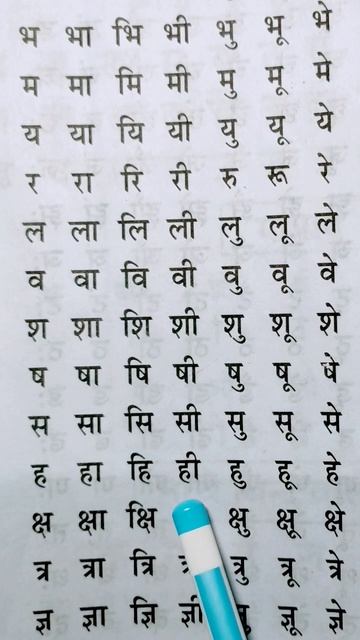 भ भा भि भी भु भू भे
म मा मि मी मु मू मे
य या यि यी यु यू ये
र रा रि री रु रू रे
ल ला लि ली लु लू ले
व वा वि वी वु वू वे
श शा शि शी शु शू शे
ष षा षि षी षु षू षे
स सा सि सी सु सू से
ह हा हि ही हु हू हे
क्ष क्षा क्षि क्षु क्षू क्षे
त्र त्रा त्रि त्रु त्रू त्रे
ज्ञ ज्ञा ज्ञि ज्ञी ज्ञू ज्ञे